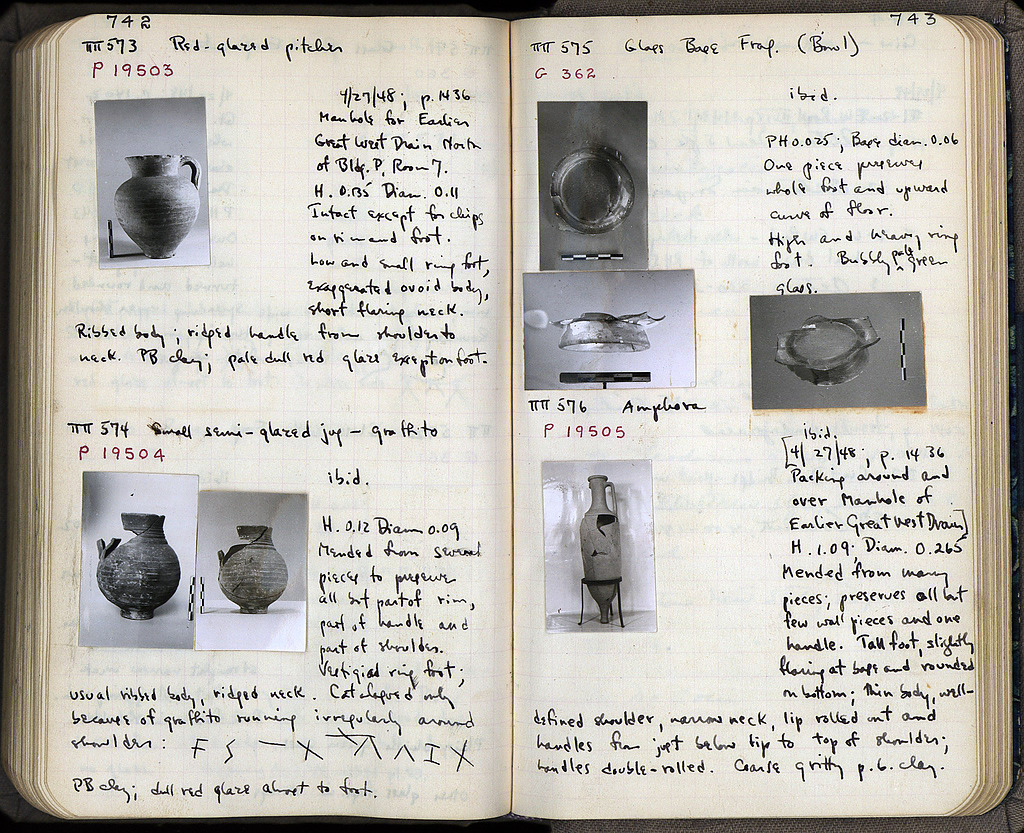 742
ΠΠ 573 Red-glazed pitcher
P 19503
4/27/48; p. 1436
Manhole for Earlier
Great West Drain North
of Bldg. P, Room 7.
H. 0.135 Diam. 0.11
Intact except for chips
on rim and foot.
Low and small ring foot,
exaggerated ovoid body,
short flaring neck.
Ribbed body; ridged handle from shoulder to
neck. PB clay; pale dull red glaze except on foot.
ΠΠ 574 Small semi-glazed jug – graffito
P 19504
ibid.
H. 0.12 Diam 0.09
Mended from several
pieces to preserve
all but part of rim,
part of handle and
part of shoulder.
Vestigial ring foot;
usual ribbed body, ridged neck. Catalogued only
because of graffito running irregularly around
shoulder:
PB clay; dull red glaze almost to foot.
743
ΠΠ 575 Glass Base Frag. (Bowl)
G 362
ibid.
PH 0.025; Base diam. 0.06
One piece preserves
whole foot and upward
curve of floor.
High and heavy ring
foot. Bubbly pale green
glass.
ΠΠ 576 Amphora
P 19505
ibid.
[4/27/48; p. 1436
Packing around and
over Manhole of
Earlier Great West Drain]
H. 1.09; Diam. 0.265
Mended from many
pieces; preserves all but
few wall pieces and one
handle. Tall foot, slightly
flaring at base and rounded
on bottom; thin body, well-
defined shoulder, narrow neck, lip rolled out and
handles from just below lip to top of shoulder;
handles double-rolled. Coarse gritty p.b. clay.